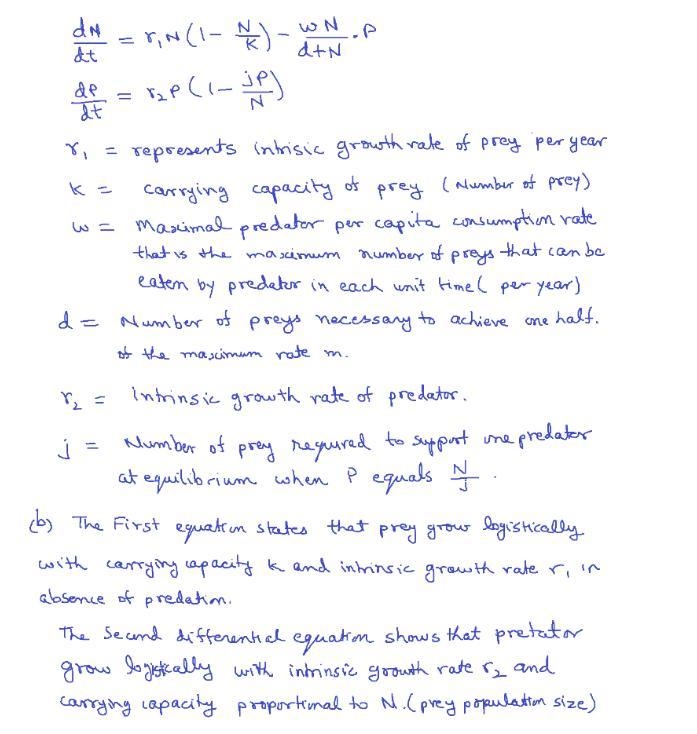 dN/dt = r₁N(1 - N/K) - wN/d+N . P
dP/dt = r₂P(1 - jP/N)
r₁ = represents intrisic growth rate of prey per year
k = carrying capacity of prey (Number of prey)
w = Maximal predator per capita consumption rate
that is the maximum number of preys that can be
eaten by predator in each unit time( per year)
d = Number of preys necessary to achieve one half.
of the maximum rate m.
r₂ = Intrinsic growth rate of predator.
j = Number of prey required to support one predator
at equilibrium when P equals N/J .
(b) The First equation states that prey grow logistically
with carrying capacity k and intrinsic growth rate r₁ in
absence of predation.
The Second differential equation shows that pretator
grow logistically with intrinsic growth rate r₂ and
carrying capacity proportional to N. (prey population size)